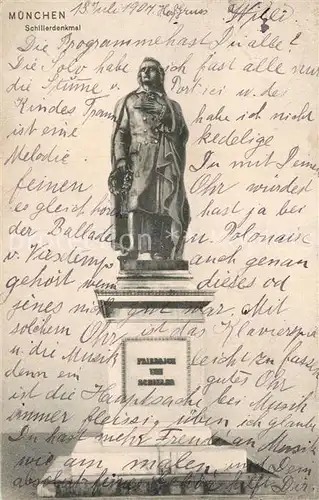 MÜNCHEN
Schillerdenkmal
18 Juli 1907
Willi
Die Programme hast Du alle?
Die Solo habe ich fast alle nur
die Stumme v. Portici u. des
Kindes Traum habe ich nicht
ist eine
Melodie. Du mit Deinem
feinen Ohr würdest
es gleich hören hast ja bei
der Ballade u. Polonaise
auch genau
gehört wenn dieses od
jenes nicht gut war. Mit
solchem Ohr ist das Klavierspiel
u. die Musik leicht zu fassen
denn ein gutes Ohr
ist die Hauptsache bei Musik
immer fleissig üben ich glaube
Du hast mehr Freude an Musik
wie am malen, und Dein
FRIEDRICH
VON
SCHILLER